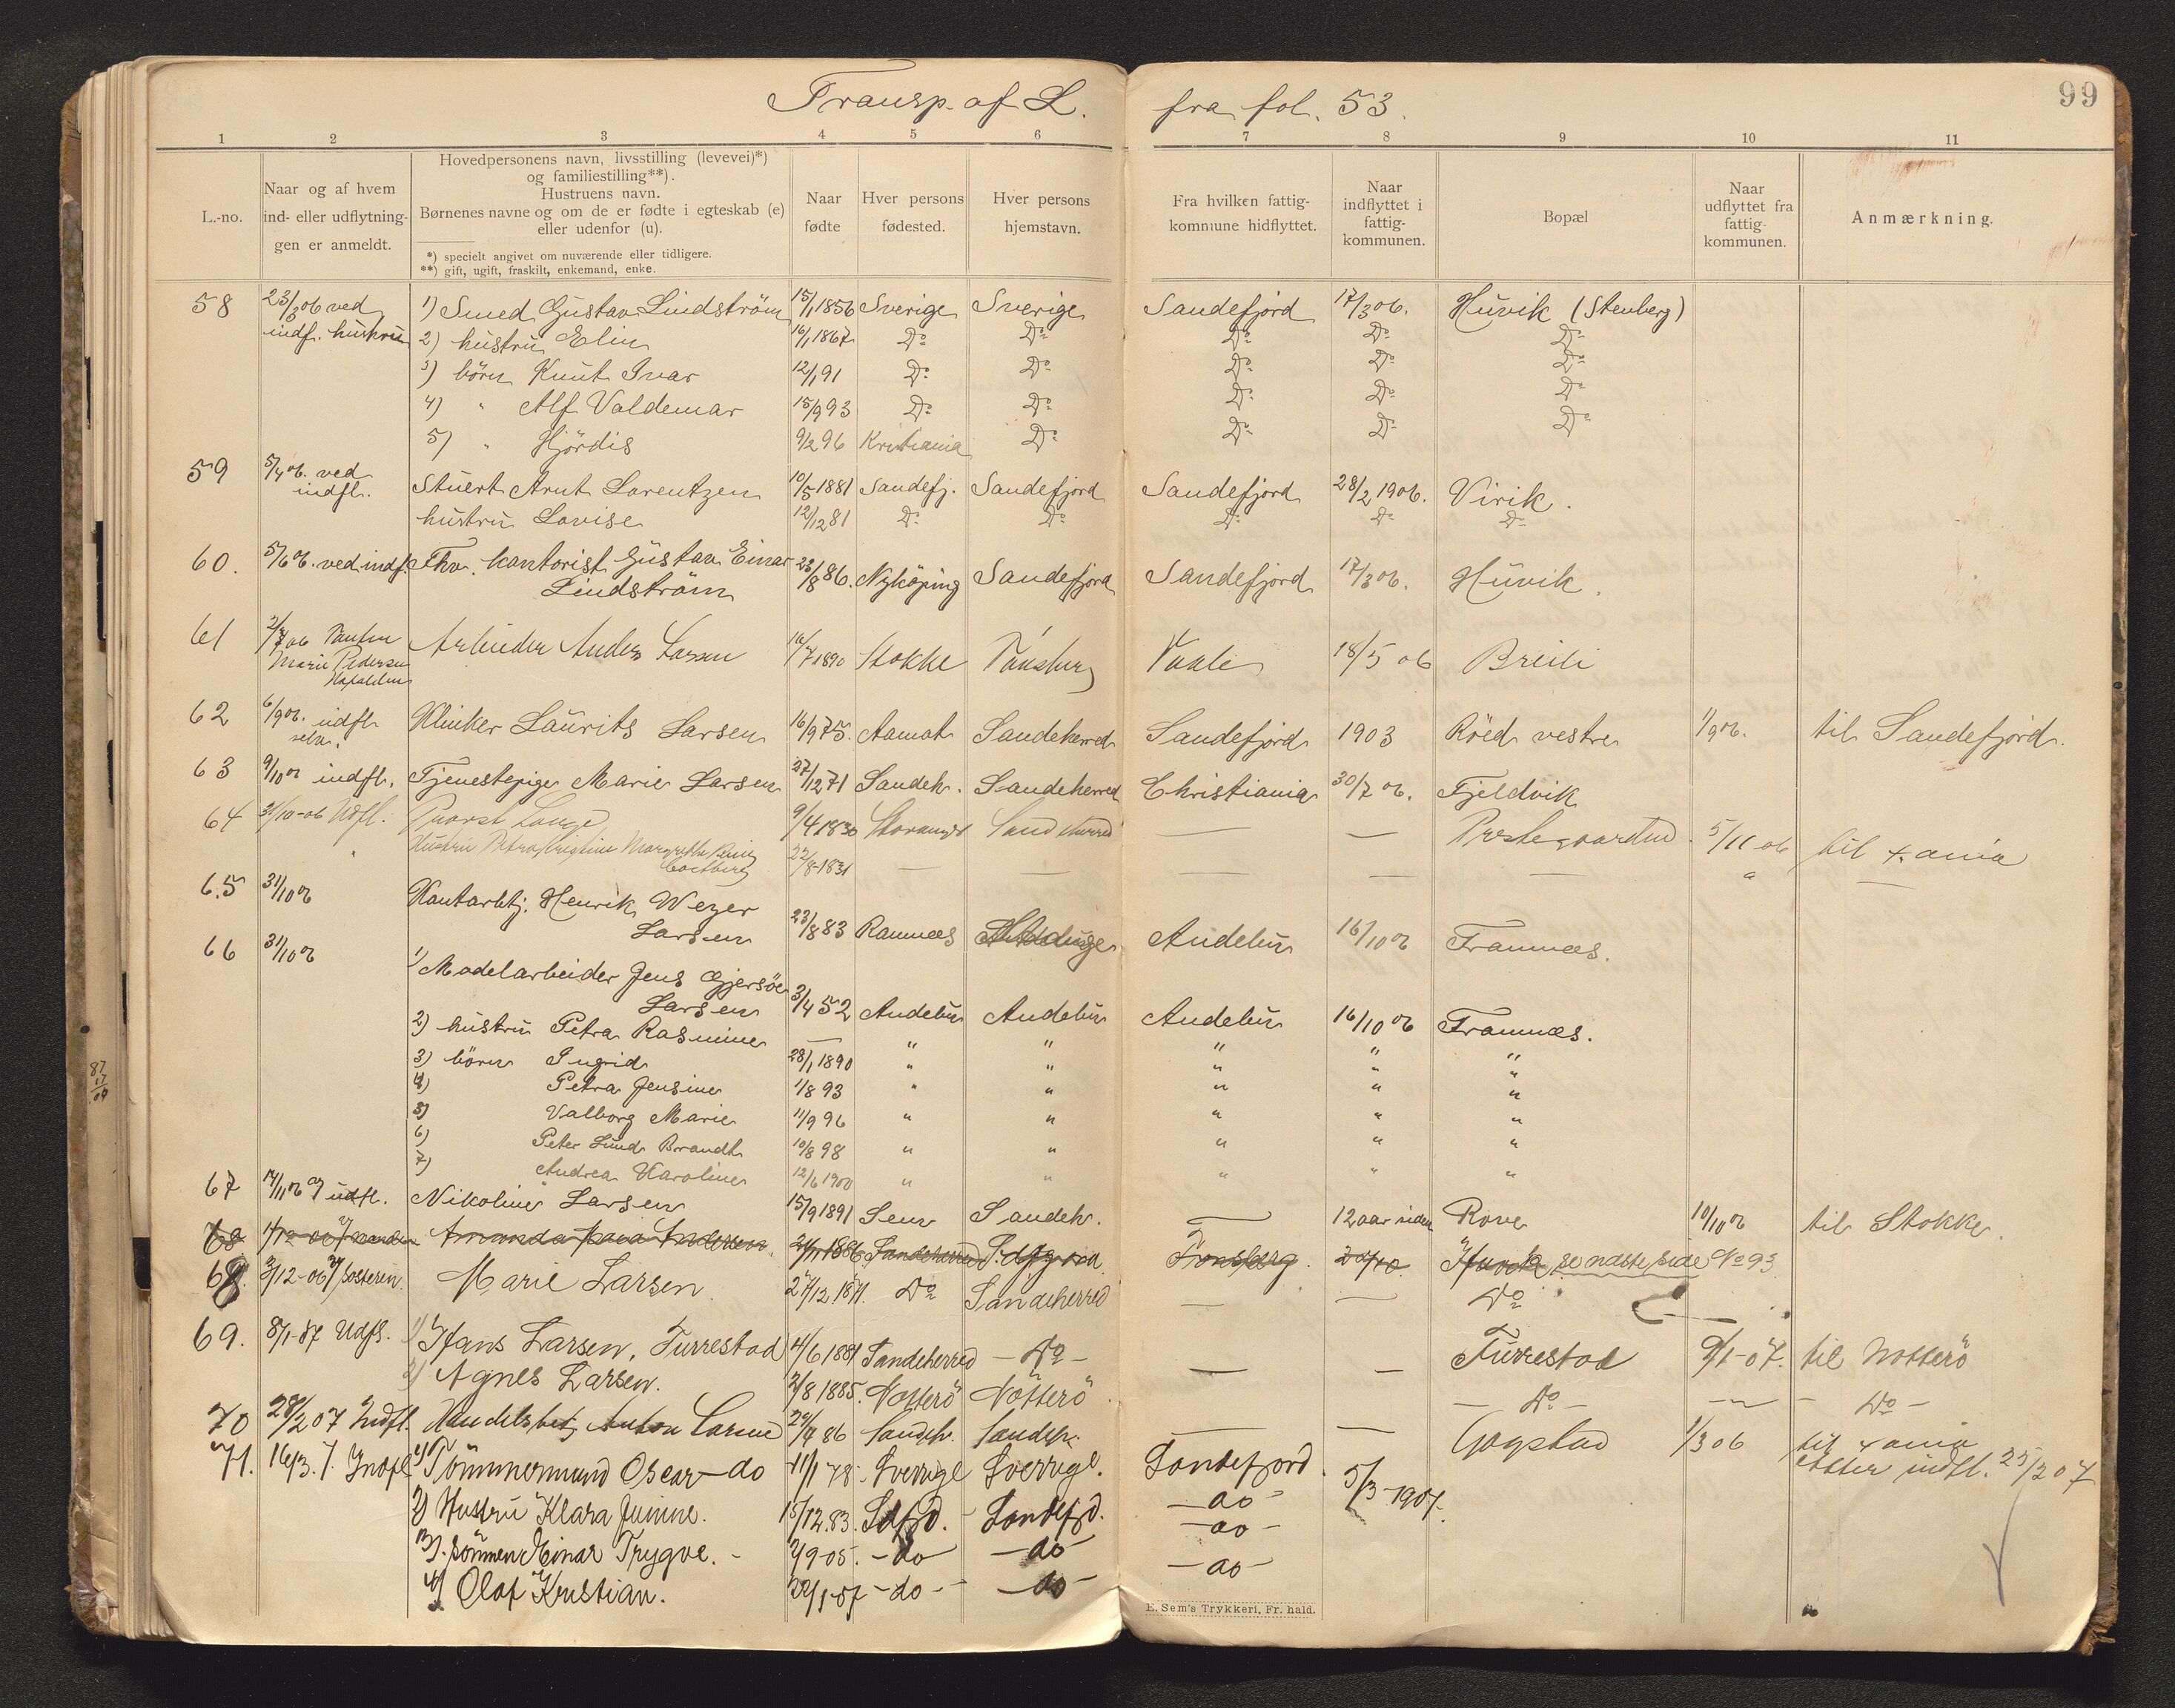 Transp. af L. fra fol. 53.
99
1 2 3 4 5 6 7 8 9 10 11
L.-no.
Naar og af hvem
ind- eller udflytnin-
gen er anmeldt.
Hovedpersonens navn, livsstilling (levevei)*)
og familiestilling**).
Hustruens navn.
Børnenes navne og om de er fødte i egteskab (e)
eller udenfor (u).
*) specielt angivet om nuværende eller tidligere.
**) gift, ugift, fraskilt, enkemand, enke.
Naar
fødte
Hver persons
fødested.
Hver persons
hjemstavn.
Fra hvilken fattig-
kommune hidflyttet.
Naar
indflyttet i
fattig-
kommunen.
Bopæl
Naar
udflyttet fra
fattig-
kommunen.
Anmærkning.
58 23/3 06 ved 1) Smed Gustav Lindström 15/1 1856 Sverige Sverige Sandefjord 17/3 06. Huvik (Stenberg)
indf. hustru 2) hustru Elin 16/1 1867 Do Do Do Do Do
3) börn Knut Ivar 12/1 91 Do Do Do Do Do
4) " Alf Valdemar 15/9 93 Do Do Do Do Do
5) " Hjördis 9/2 96 Kristiania Do Do Do Do
59 5/4 06. ved Stuert Arnt Lorentzen 10/5 1881 Sandefj. Sandefjord Sandefjord 28/2 1906. Virik.
indfl. hustru Lovise 12/12 81 Do Do Do Do Do
60. 5/6 06. ved indf. Fhv. kontorist Gustav Einar 23/8 86. Nyköping Sandefjord Sandefjord 17/3 06. Huvik.
Lindström
61 2/7 06 Marie Pedersen Arbeider Anders Larsen 16/7 1890 Stokke Tönsberg Vaale 18/5 06 Breili
62 6/9 06. indfl. Klinker Laurits Larsen 16/9 75. Aamot Sandeherred Sandefjord 1903 Röed vestre 1/9 06. til Sandefjord.
selv.
63 9/10 06 indfl. Tjenestepige Marie Larsen 27/12 71 Sandeh. Sandeherred Christiania 30/7 06. Fjeldvik
64 31/10-06 Udfl. Provst Lange 9/4 1830 Stavanger Sandeherred — — Prestegaarden 5/11 06 til X.ania
" Hustru Petra Kristine Margrethe 22/8-1831 — — — — — " —
65 31/10 06 Kontorbtj. Henrik Wezer
Larsen 23/8 83 Ramnæs Andebu 16/10 06 Framnæs.
66 31/10 06 1) Modelarbeider Jens Gjersöe
Larsen 3/4 52 Andebu Andebu Andebu 16/10 06 Framnæs.
2) hustru Petra Rasmine — " " " " "
3) börn Ingrid 28/1 1890 " " " " "
4) Petra Jensine 1/8 93 " " " " "
5) Valborg Marie 11/9 96 " " " " "
6) Peter Lund Brandt 10/8 98 " " " " "
7) Andrea Karoline 12/6 1900 " " " " "
67 14/11 06 af udfl. Nikoline Larsen 15/9 1891 Sem Sandeh. — 12 aar siden Rove 10/10 06 til Stokke
68 Amanda Andersen 24/11 1886 Sandeherred Sdfjord Tonsberg. 20/10. Huvik se næste side No 93
68. 3/12-06 af søsteren Marie Larsen. 27/12 1871. Do Sandeherred — — Do
69. 8/1-07 Udfl. 1) Hans Larsen, Furrestad 4/6 1881 Sandeherred — Do — — — Furrestad 9/1-07. til Notterö
2) Agnes Larsen. 2/8 1885. Notterö Nötterö — Do — — Do —
70 28/2 07 Indfl. Handelsbetj. Anton Larsen 29/4 86 Sandeh. Sandeh. — — Gogstad 1/3 06 til X.ania
atter indfl. 25/2 07
71. 16/3. 7. Indfl. 1) Tömmermand Oscar — do 11/1 78. Sverrige Sverrige. Sandefjord. 5/3 1907.
2) Hustru Klara Junine. 15/12. 83. Sdfjd. Sandefjd. — do —
3). sönnen Einar Trygve. 2/9-05. — do — do — — do —
4) Olaf Kristian. 20/1-07 — do — — do — — do —
E. Sem's Trykkeri, Fr.hald.